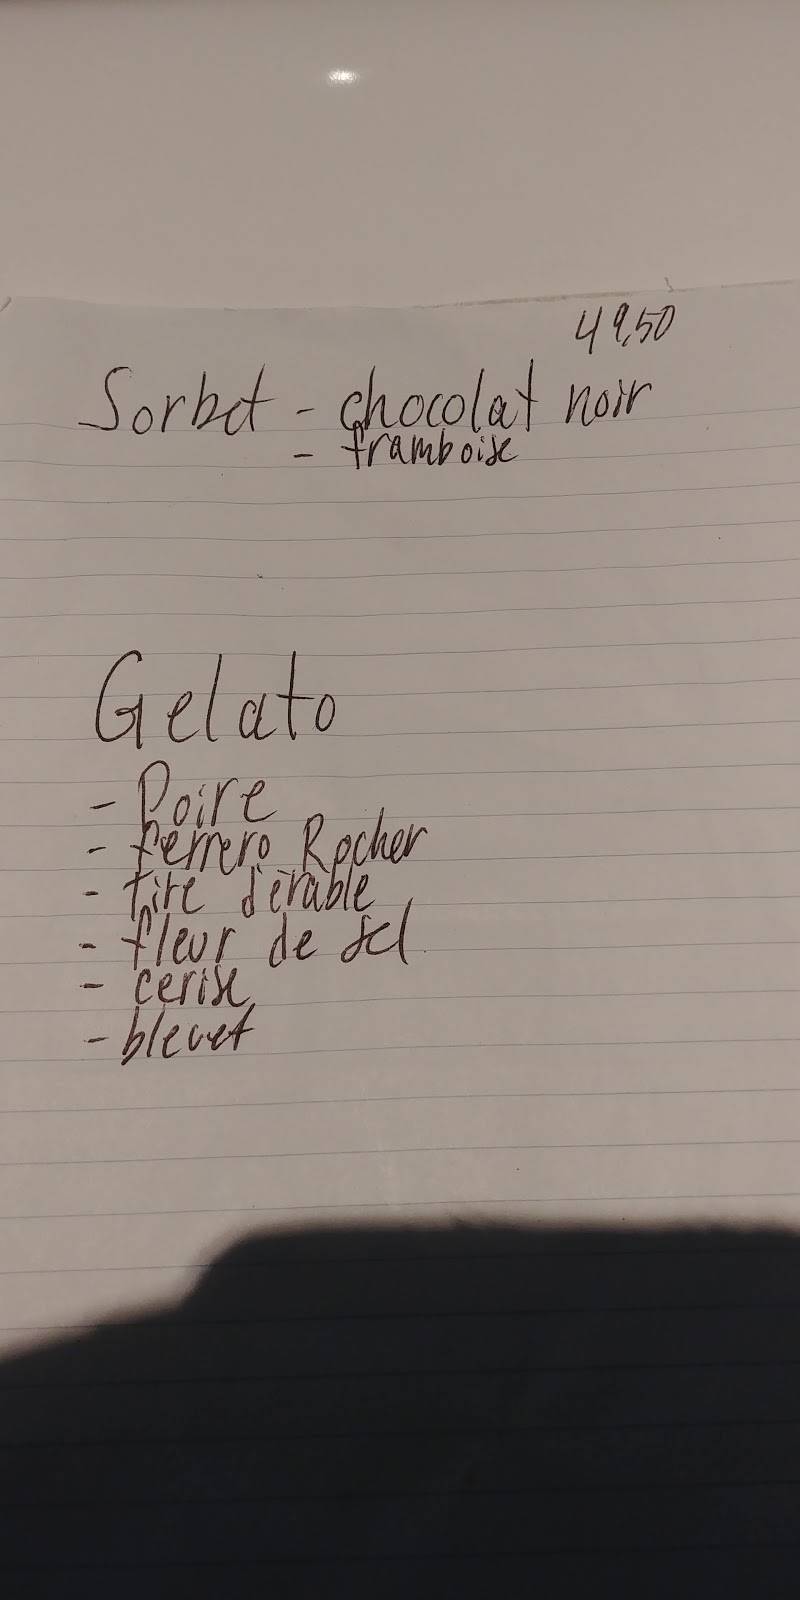 49,50
Sorbet - chocolat noir
- framboise
Gelato
- Poire
- ferrero Rocher
- tire d'érable
- fleur de sel
- cerise
- bleuet